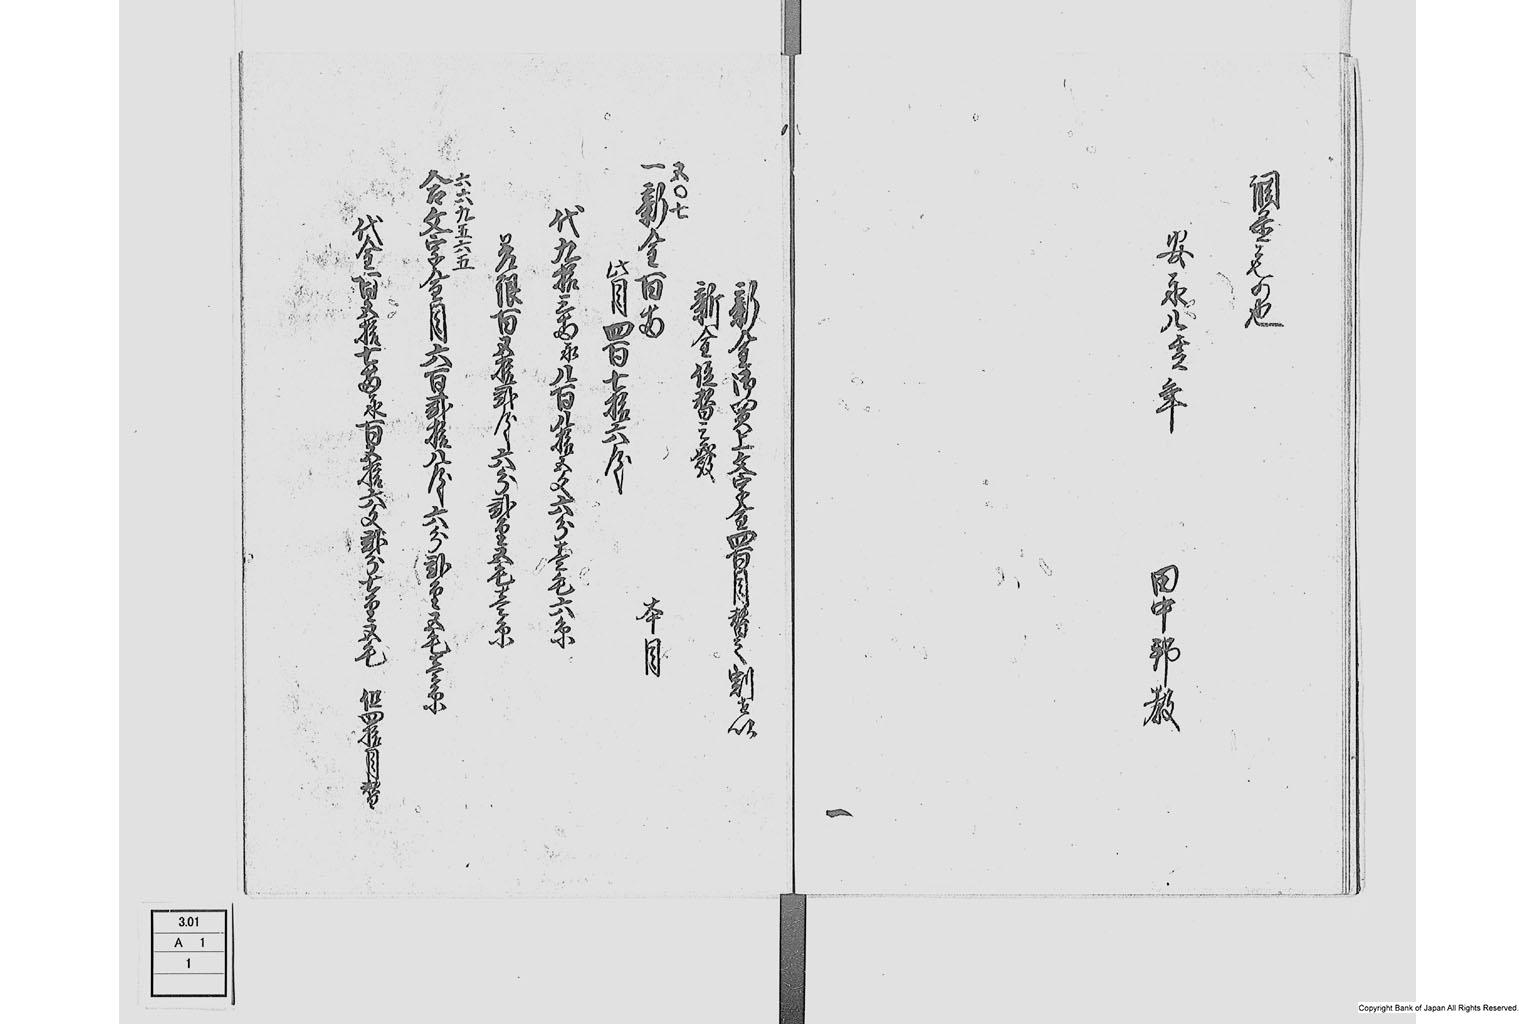 安永八亥年
田中邦教
新金御買上文字金四百目替之割を以
新金位替之

五〇七
一新金百両 本目
此目四百七拾六匁
代九拾三両永八百八拾五文六分壱毛六糸
差銀百五拾弐匁六分弐厘五毛壱糸
六六九五六五
合文字金目六百弐拾八匁六分弐厘五毛壱糸
代金百五拾七両永百五拾六文弐分七厘五毛 但四拾目替
一
3.01
A 1
1
Copyright Bank of Japan All Rights Reserved.